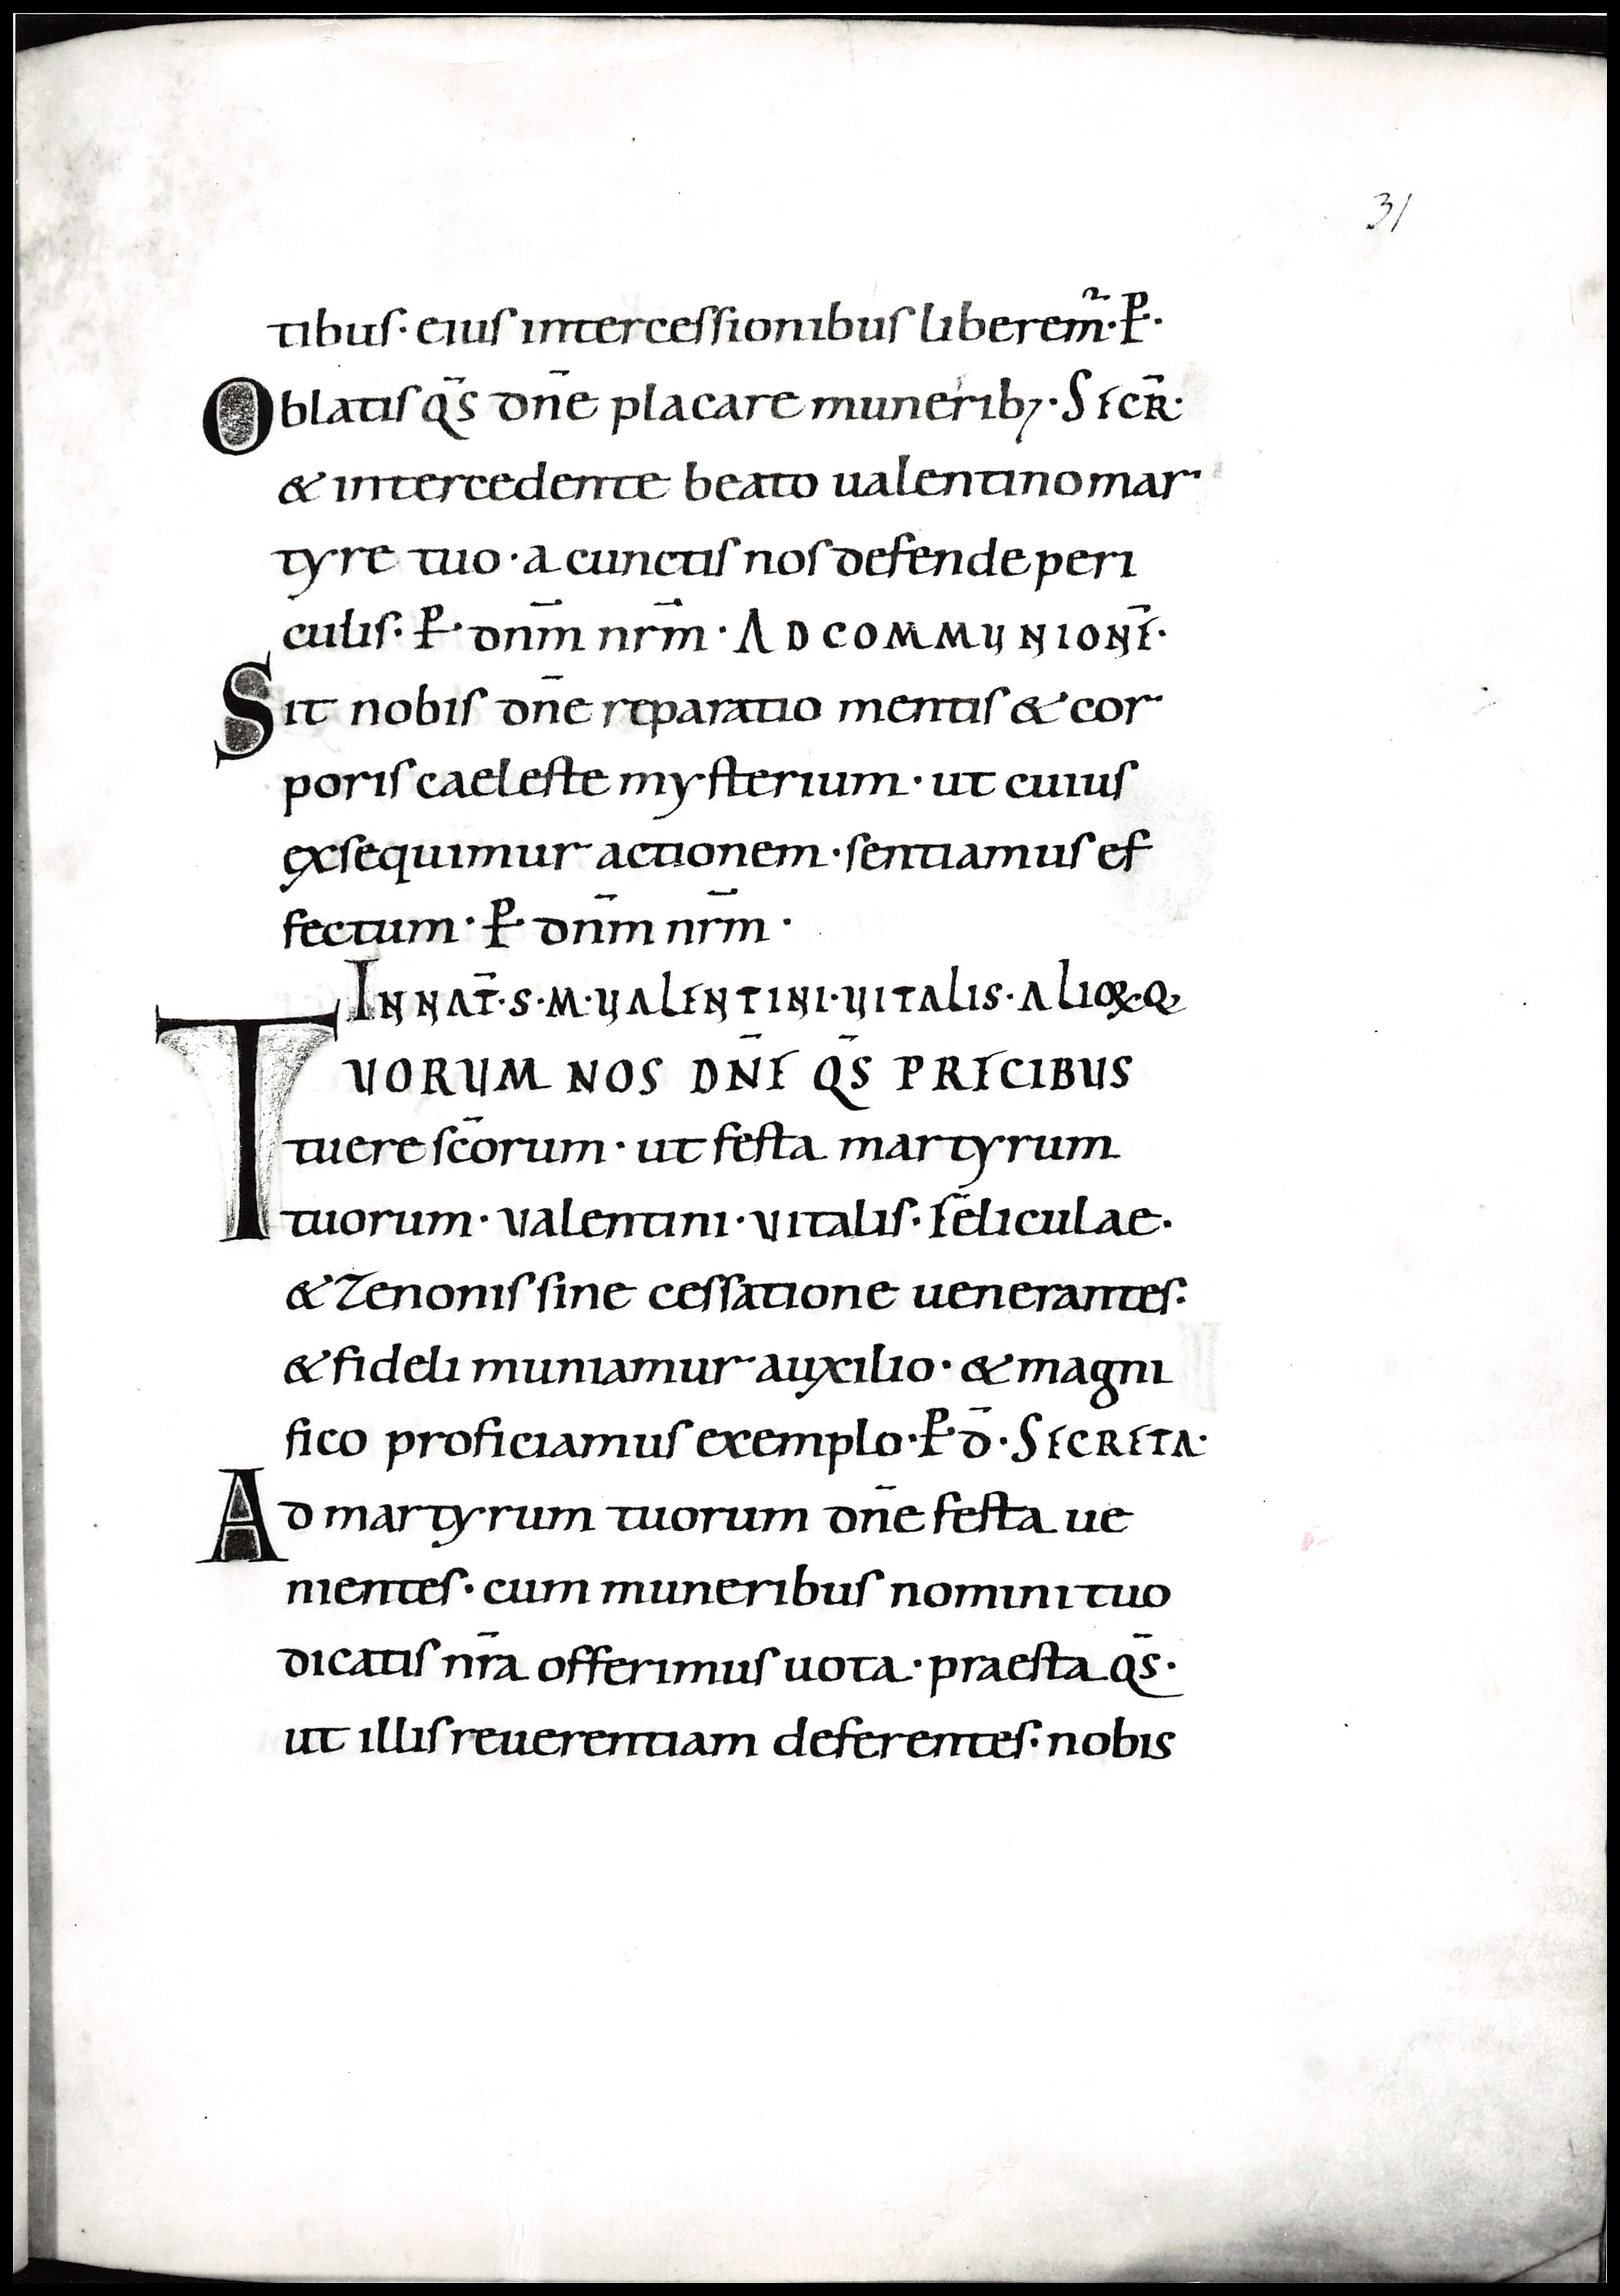 31
tibus· eius intercessionibus liberem̃·P̲·
Oblatis q̄s dn̄e placare munerib;· SECR̄·
& intercedente beato ualentino mar
tyre tuo· a cunctis nos defende peri
culis· P̲· dn̄m nr̄m· AD COMMUNIONĒ·
Sit nobis dn̄e reparatio mentis & cor
poris caeleste mysterium· ut cuius
exsequimur actionem· sentiamus ef
fectum· P̲· dn̄m nr̄m·
IN NAT̄·S·M·UALENTINI·UITALIS·ALIOR&Q·
TUORUM NOS DN̄E Q̄S PRECIBUS
tuere sc̄orum· ut festa martyrum
tuorum· Valentini· Vitalis· Feliculae·
& Zenonis sine cessatione uenerantes·
& fideli muniamur auxilio· & magni
fico proficiamus exemplo·P̲· d̄· SECRETA·
Ad martyrum tuorum dn̄e festa ue
nientes· cum muneribus nomini tuo
dicatis nr̄a offerimus uota· praesta q̄s·
ut illis reuerentiam deferentes· nobis